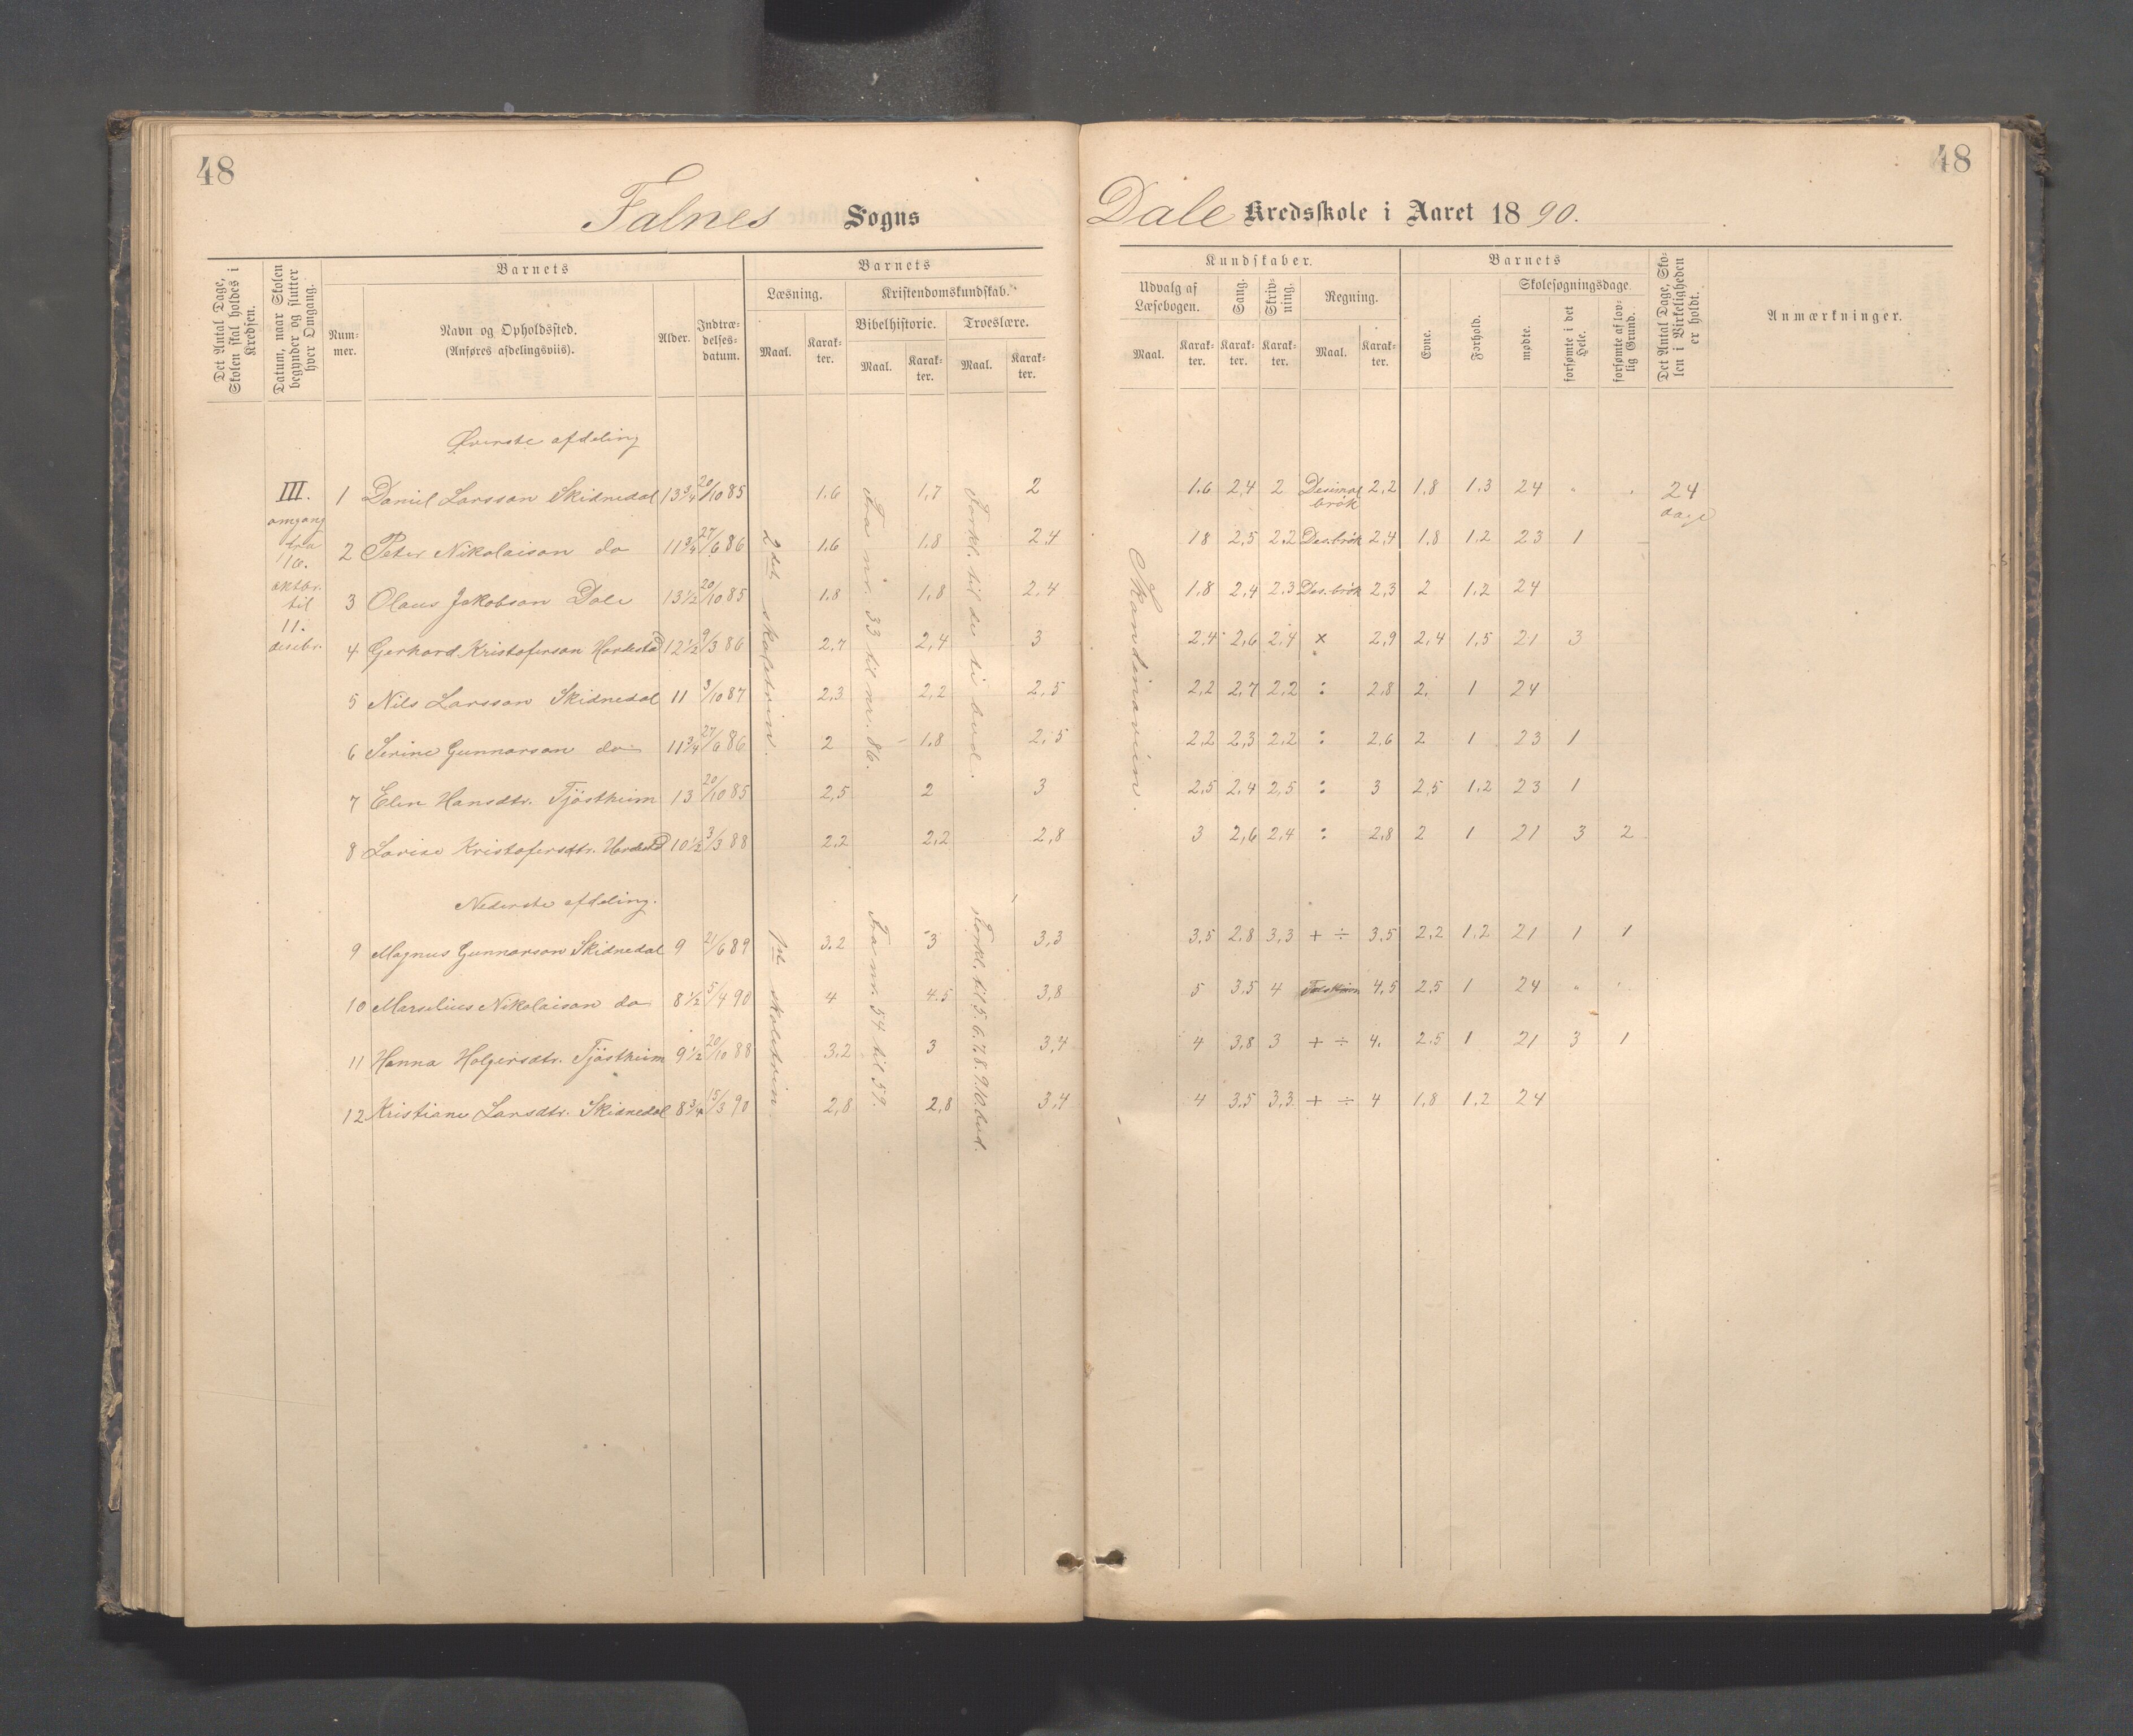 48
48
Falnes Sogns
Dale Kredsskole i Aaret 1890.
Det Antal Dage, Skolen skal holdes i Kredsen.
Datum, naar Skolen begynder og slutter hver Omgang.
Barnets
Num-
mer.
Navn og Opholdssted.
(Anføres afdelingsviis).
Alder.
Indtræ-
delses-
datum.
Barnets
Læsning.
Maal.
Karak-
ter.
Kristendomskundskab.
Bibelhistorie.
Maal.
Karak-
ter.
Troeslære.
Maal.
Karak-
ter.
Kundskaber.
Udvalg af
Læsebogen.
Maal.
Karak-
ter.
Sang.
Karak-
ter.
Skriv-
ning.
Karak-
ter.
Regning.
Maal.
Karak-
ter.
Barnets
Evne.
Forhold.
Skolesøgningsdage.
mødte.
forsømte i det Hele.
forsømte af lov-
lig Grund.
Det Antal Dage, Sko-
len i Virkeligheden
er holdt.
Anmærkninger.
Øverste afdeling
III.
omgang
fra
16.
oktbr.
til
11.
desebr.
2det skoletrin.
Fra nr. 33 til nr. 86.
Forkl. til de ti bud.
Skandinavien.
24
dage
1 Daniel Larsson Skidnedal 13 3/4 20/10 85 1.6 1,7 2 1.6 2,4 2 Desimalbrøk 2,2 1,8 1.3 24 " "
2 Peter Nikolaison do 11 3/4 27/6 86 1.6 1.8 2.4 18 2,5 2.2 Des.brøk 2,4 1,8 1.2 23 1
3 Olaus Jakobson Dale 13 1/2 20/10 85 1.8 1,8 2,4 1,8 2,4 2.3 Des.brøk 2,3 2 1.2 24
4 Gerhard Kristoferson 12 1/2 9/3 86 2,7 2,4 3 2,4 2,6 2,4 × 2,9 2,4 1,5 21 3
5 Nils Larsson Skidnedal 11 3/10 87 2,3 2,2 2,5 2,2 2,7 2,2 : 2,8 2. 1 24
6 Serine Gunnarson do 11 3/4 27/6 86 2 1.8 2,5 2,2 2,3 2,2 : 2.6 2 1 23 1
7 Elen Hansdtr. Tjøstheim 13 20/10 85 2,5 2 3 2.5 2,4 2,5 : 3 2,5 1.2 23 1
8 Lovise Kristofersdtr. 10 1/2 3/3 88 2,2 2,2 2,8 3 2,6 2,4 : 2,8 2 1 21 3 2
Nederste afdeling.
1ste skoletrin
Fra nr. 54 til 59.
Forkl. til 5. 6. 7. 8. 9. 10. bud.
9 Magnus Gunnarson Skidnedal 9 21/6 89 3.2 3 3,3 3,5 2.8 3,3 + ÷ 3.5 2,2 1,2 21 1 1
10 Marselius Nikolaison do 8 1/2 5/4 90 4 4.5 3,8 5 3.5 4 4,5 2.5 1 24 "
11 Hanna Holgersdtr. Tjøstheim 9 1/2 20/10 88 3,2 3 3,4 4 3,8 3 + ÷ 4. 2.5 1 21 3 1
12 Kristiane Larsdtr. Skidnedal 8 3/4 15/3 90 2,8 2,8 3,4 4 3.5 3,3 + ÷ 4 1,8 1,2 24